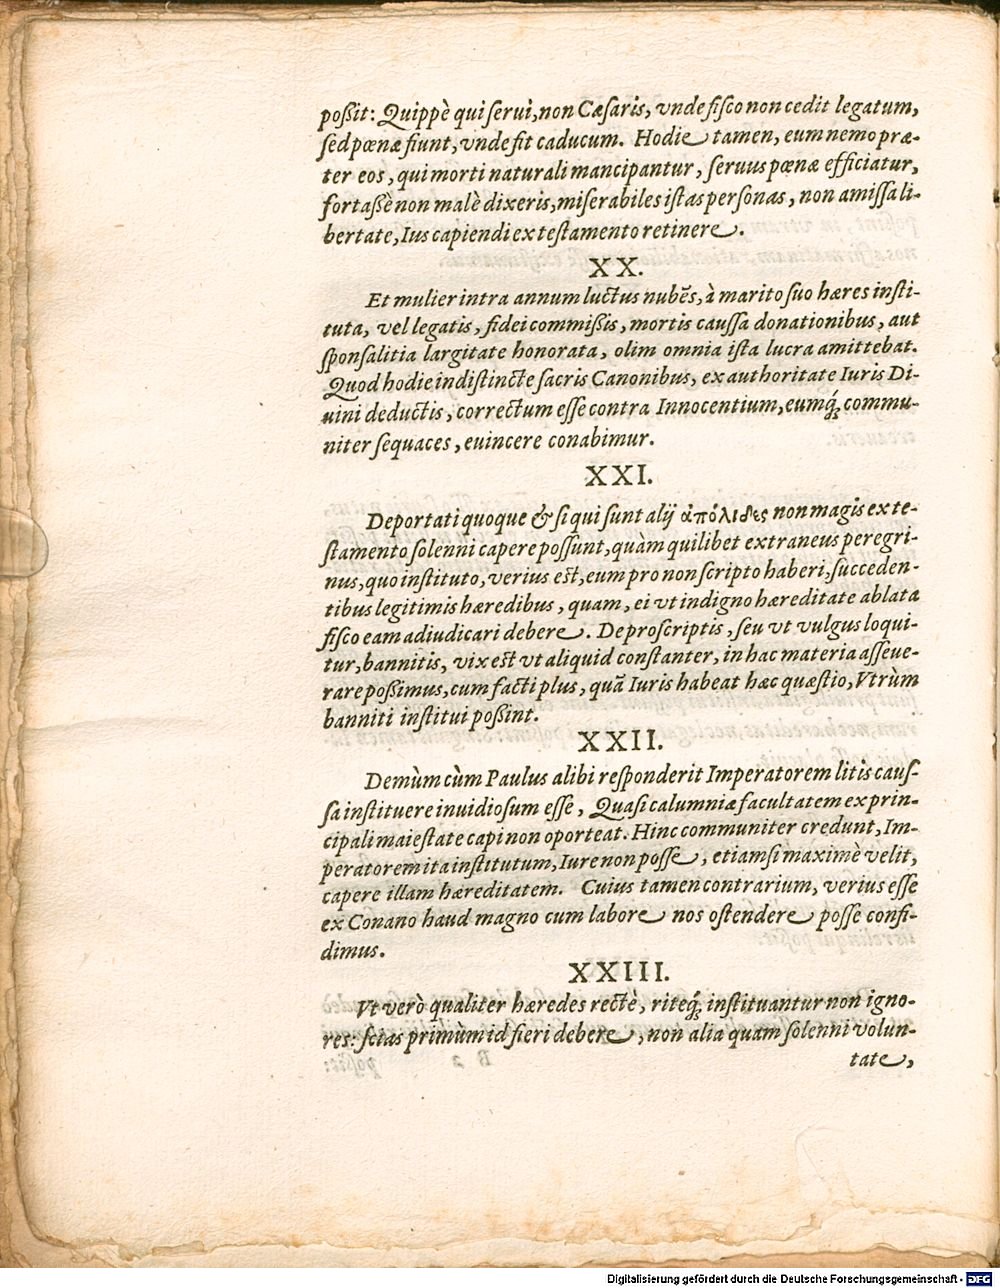 poßit: Quippè qui serui, non Cæsaris, vnde fisco non cedit legatum,
sed pœnæ fiunt, vnde fit caducum. Hodie tamen, eum nemo præ-
ter eos, qui morti naturali mancipantur, seruus pœnæ efficiatur,
fortaßè non malè dixeris, miserabiles istas personas, non amissa li-
bertate, Ius capiendi ex testamento retinere.
XX.
Et mulier intra annum luctus nubēs, à marito suo hæres insti-
tuta, vel legatis, fidei commißis, mortis caussa donationibus, aut
sponsalitia largitate honorata, olim omnia ista lucra amittebat.
Quod hodie indistincte sacris Canonibus, ex authoritate Iuris Di-
uini deductis, correctum esse contra Innocentium, eumq́; commu-
niter sequaces, euincere conabimur.
XXI.
Deportati quoque & si qui sunt alij ἀπόλιδες non magis ex te-
stamento solenni capere possunt, quàm quilibet extraneus peregri-
nus, quo instituto, verius est, eum pro non scripto haberi, succeden-
tibus legitimis hæredibus, quam, ei vt indigno hæreditate ablata
fisco eam adiudicari debere. De proscriptis, seu vt vulgus loqui-
tur, bannitis, vix est vt aliquid constanter, in hac materia asseue-
rare possimus, cum facti plus, quā Iuris habeat hæc quæstio, Vtrùm
banniti institui poßint.
XXII.
Demùm cùm Paulus alibi responderit Imperatorem litis caus-
sa instituere inuidiosum esse, Quasi calumniæ facultatem ex prin-
cipali maiestate capi non oporteat. Hinc communiter credunt, Im-
peratorem ita institutum, Iure non posse, etiamsi maximè velit,
capere illam hæreditatem. Cuius tamen contrarium, verius esse
ex Conano haud magno cum labore nos ostendere posse confi-
dimus.
XXIII.
Vt verò qualiter hæredes rectè, riteq́; instituantur non igno-
res: scias primùm id fieri debere, non alia quam solenni volun-
tate,
Digitalisierung gefördert durch die Deutsche Forschungsgemeinschaft - DFG